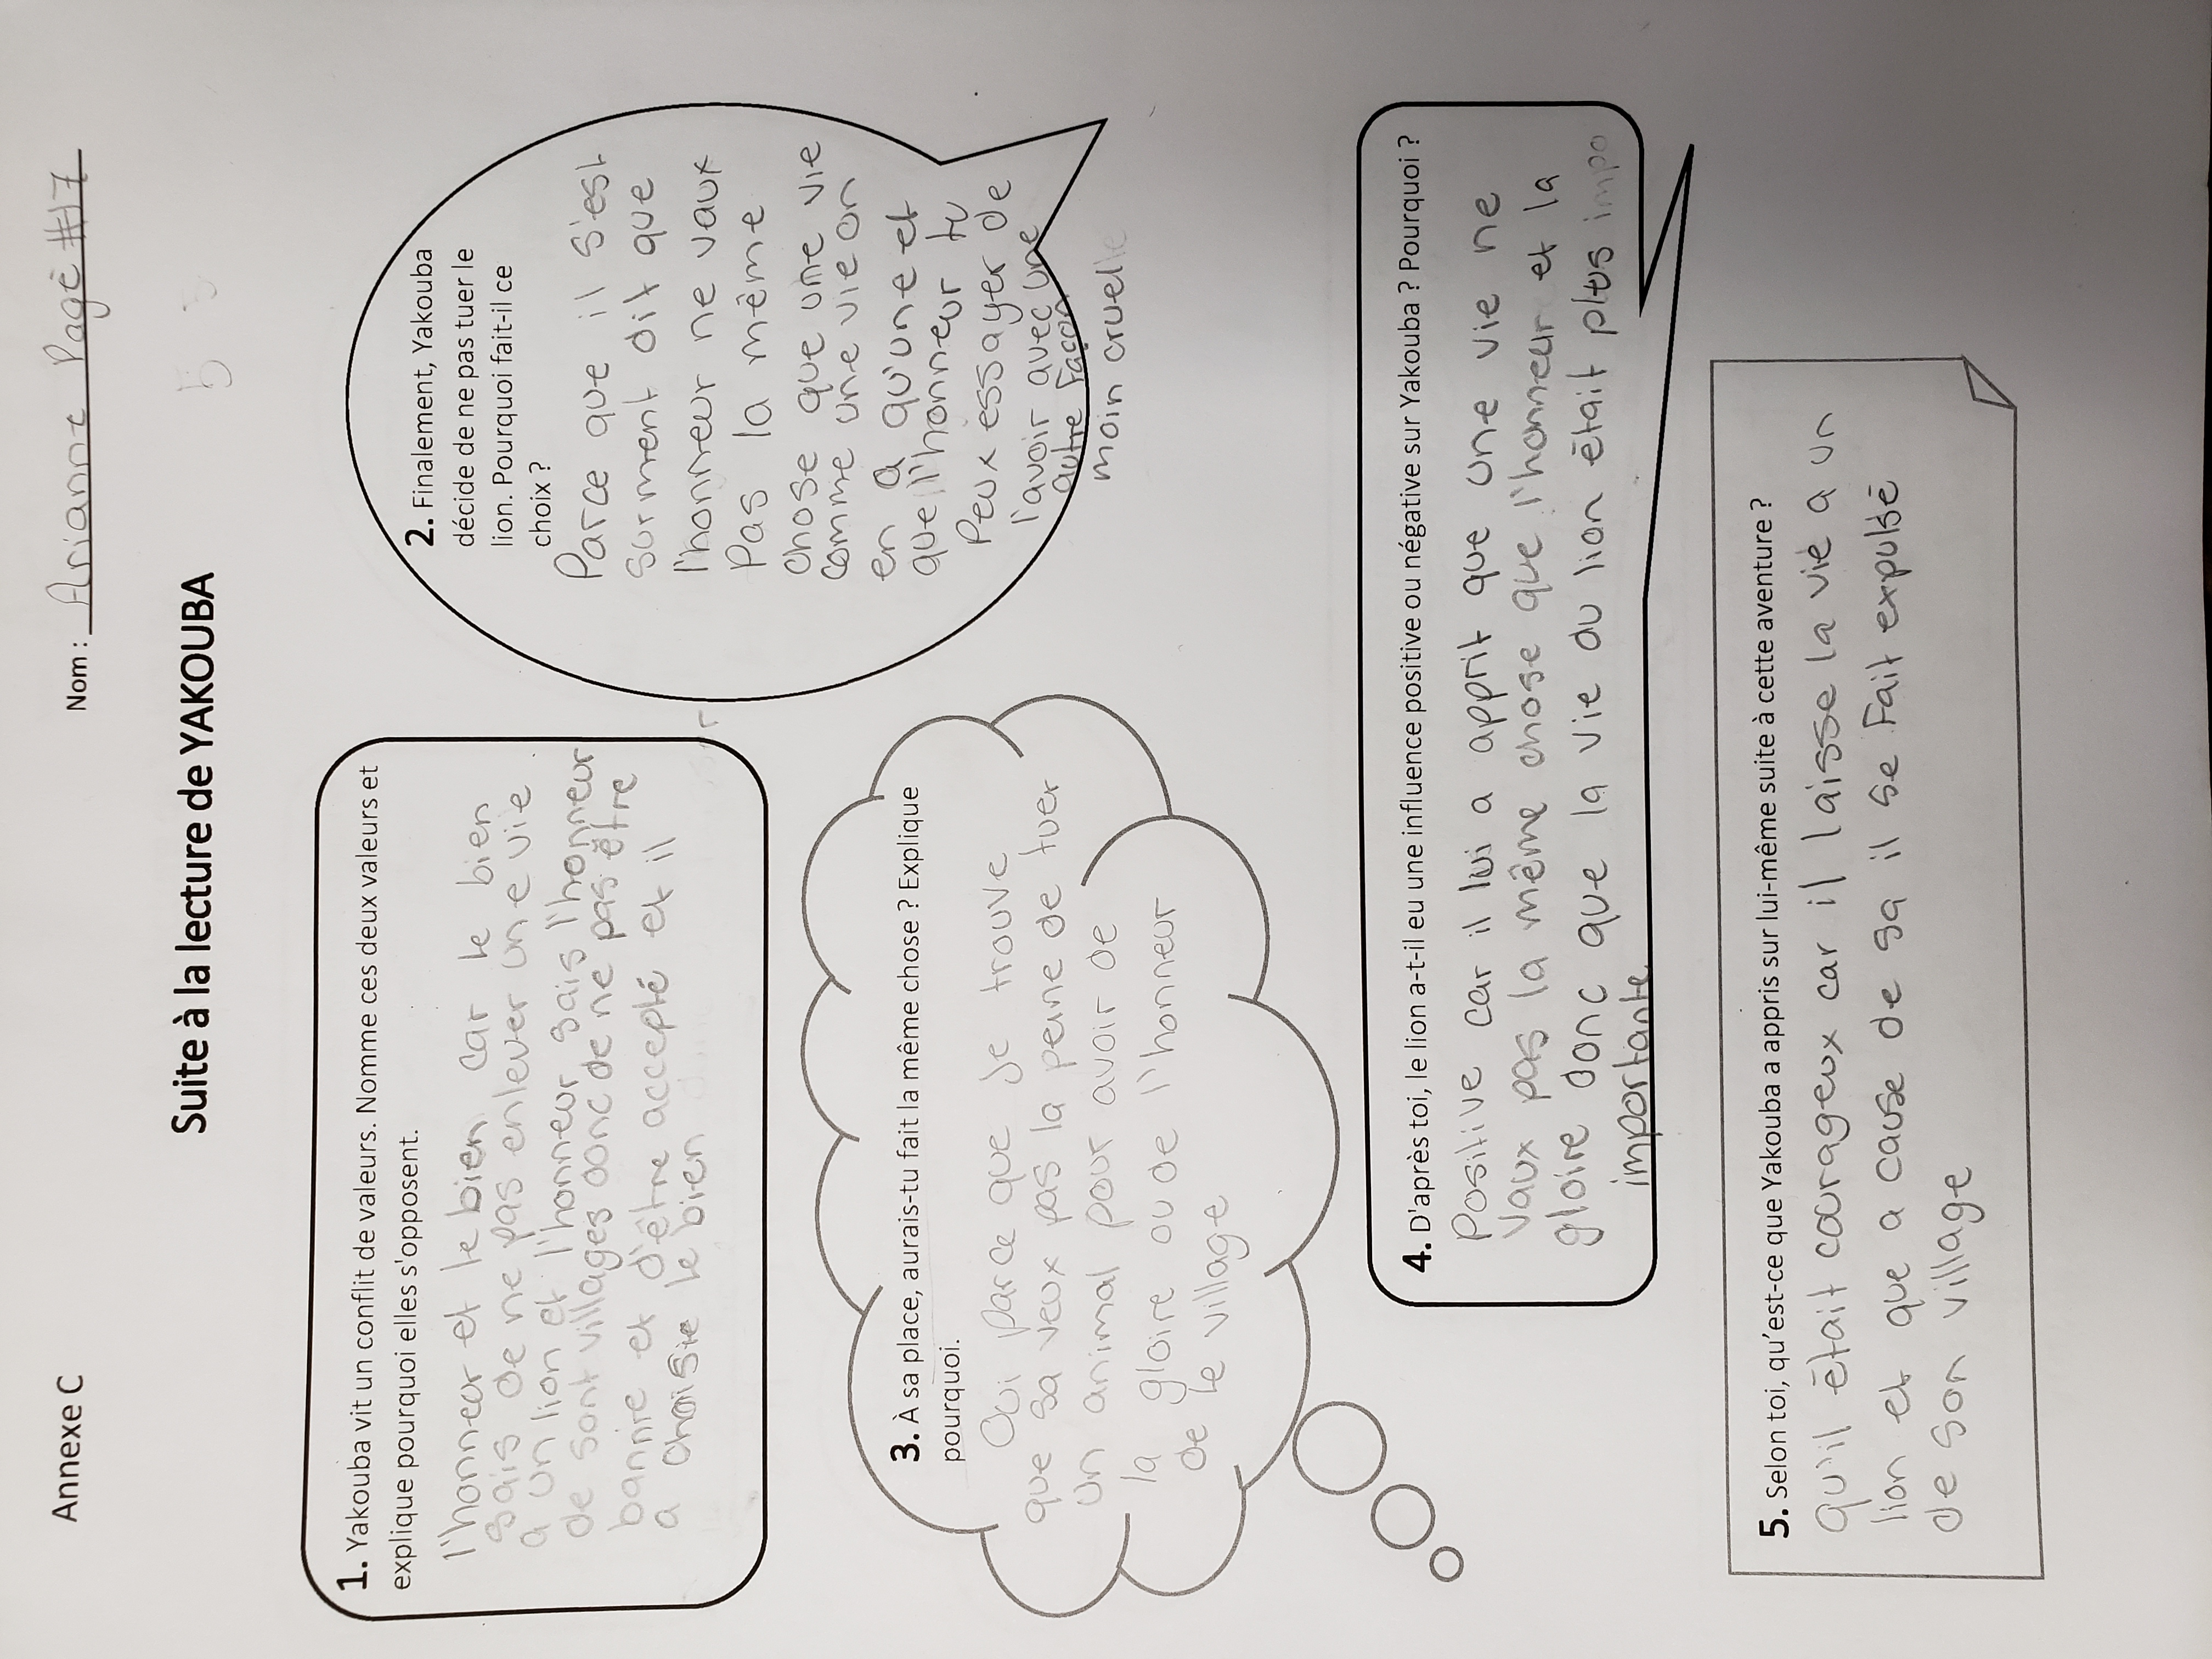 Annexe C
Nom : Arianne Pagé #17
Suite à la lecture de YAKOUBA
1. Yakouba vit un conflit de valeurs. Nomme ces deux valeurs et
explique pourquoi elles s'opposent.
l'honneur et le bien car le bien
sais de ne pas enlever une vie
a un lion et l'honneur sais l'honneur
de sont villages donc de ne pas être
bannire et d'être accepté et il
a choisie le bien
2. Finalement, Yakouba
décide de ne pas tuer le
lion. Pourquoi fait-il ce
choix ?
Parce que il s'est
surment dit que
l'honneur ne vaux
Pas la même
chose que une vie
comme une vie on
en a qu'une et
que l'honneur tu
Peux essayer de
l'avoir avec une
autre façon
moin cruelle
3. À sa place, aurais-tu fait la même chose ? Explique
pourquoi.
Oui parce que je trouve
que sa veux pas la peine de tuer
un animal pour avoir de
la gloire ou de l'honneur
de le village
4. D'après toi, le lion a-t-il eu une influence positive ou négative sur Yakouba ? Pourquoi ?
Positive car il lui a apprit que une vie ne
vaux pas la même chose que l'honneur et la
gloire donc que la vie du lion était plus impo
importante
5. Selon toi, qu'est-ce que Yakouba a appris sur lui-même suite à cette aventure ?
qu'il était courageux car il laisse la vie a un
lion et que a cause de sa il se fait expulsé
de son village